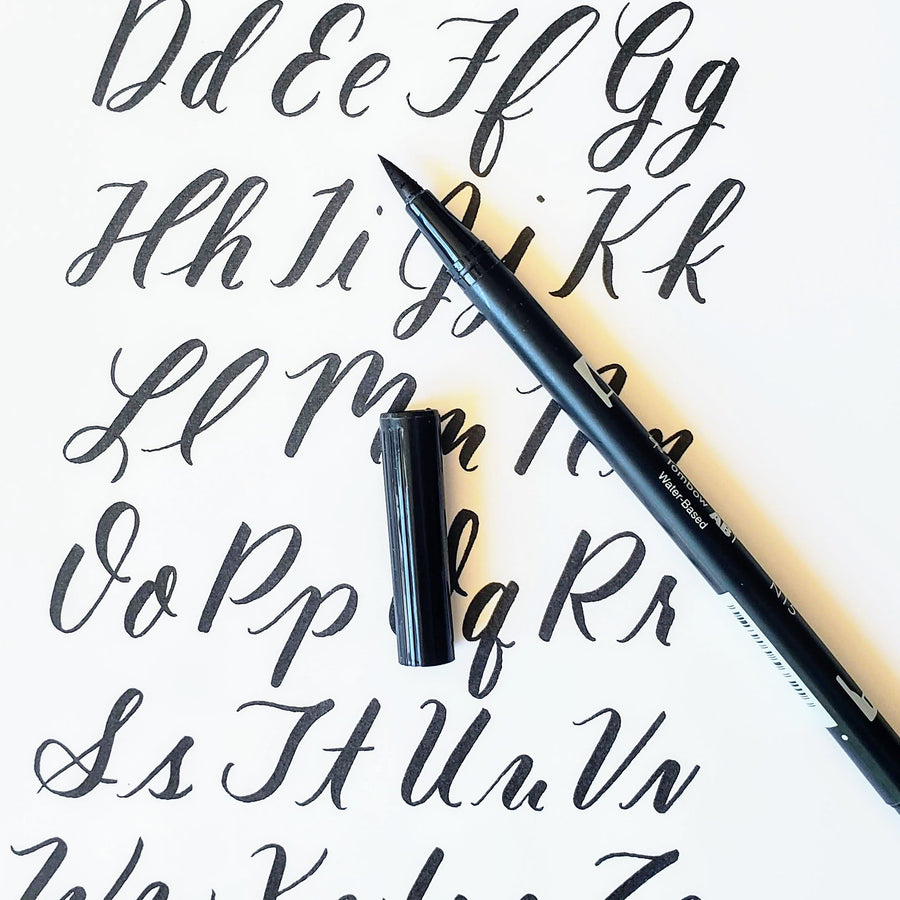 Dd Ee Ff Gg
Hh Ii Jj Kk
Ll Mm Nn
Oo Pp Qq Rr
Ss Tt Uu Vv
Tombow ABT
Water-Based
N15